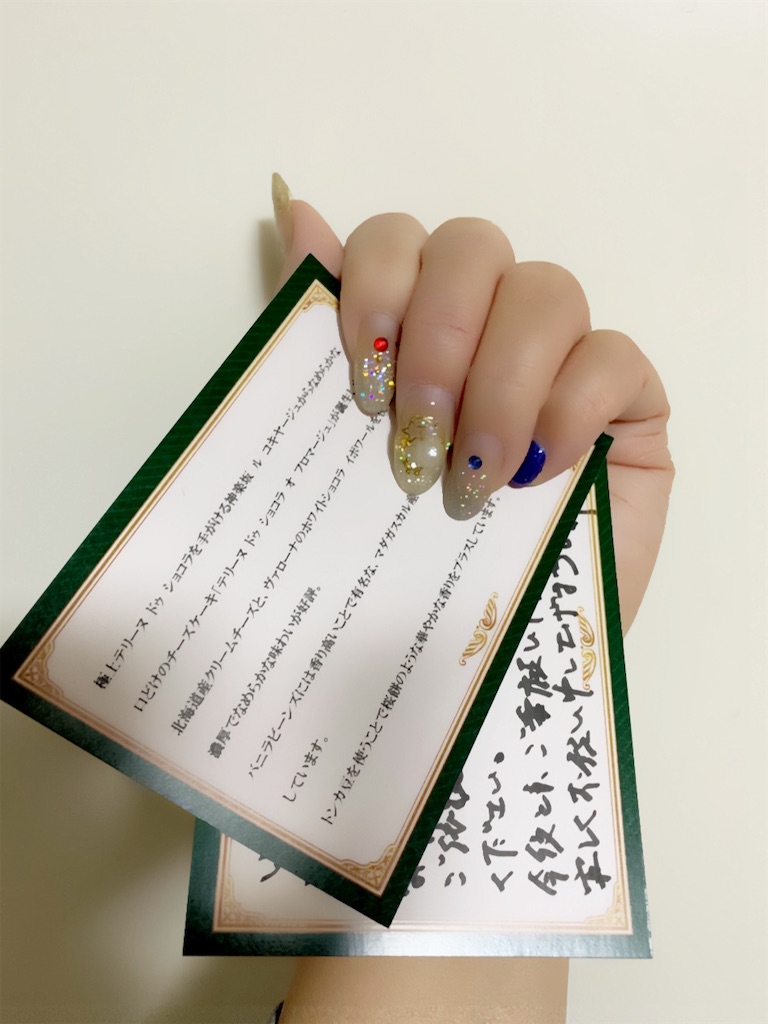 極上テリーヌ ドゥ ショコラを手がける神楽坂 ル コキヤージュからなめらかな
口どけのチーズケーキ「テリーヌ ドゥ ショコラ オ フロマージュ」が誕生
北海道産クリームチーズと、ヴァローナのホワイトショコラ イボワールを
濃厚でなめらかな味わいが好評。
バニラビーンズには香り高いことで有名な、マダガスカル
しています。
トンカ豆を使うことで桜餅のような華やかな香りをプラスしています。
ください。
今後とも、ご愛顧
宜しくお願い申し上げます